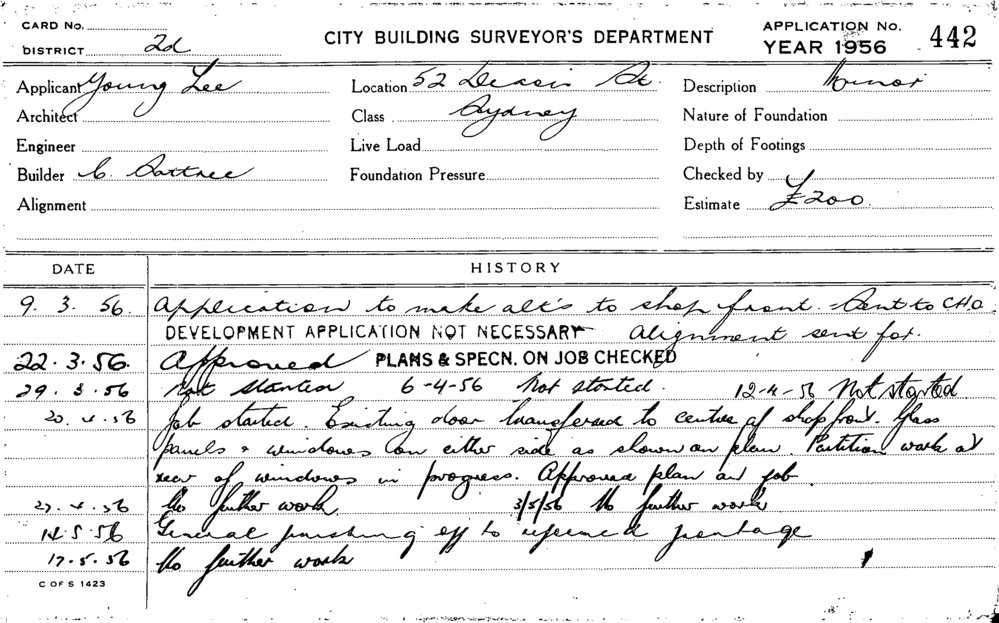 CARD No.
DISTRICT 2d
CITY BUILDING SURVEYOR'S DEPARTMENT
APPLICATION No. 442
YEAR 1956
Applicant Young Lee
Location 52 St.
Description Minor
Architect
Class Sydney
Nature of Foundation
Engineer
Live Load
Depth of Footings
Builder C.
Foundation Pressure
Checked by
Alignment
Estimate £200
DATE HISTORY
9.3.56. Application to make alt's to shop front. Sent to C.H.O.
DEVELOPMENT APPLICATION NOT NECESSARY Alignment sent for.
22.3.56. Approved PLANS & SPECN. ON JOB CHECKED
29.3.56 Not started 6-4-56 Not started. 12-4-56 Not started
20.4.56 Job started. Existing door transferred to centre of shop front. Glass
panels & windows on either side as shown on plan. Partition work at
rear of windows in progress. Approved plan on job.
27.4.56 No further work 3/5/56 No further work
14.5.56 General finishing off to frontage
17.5.56 No further work
C OF S 1423